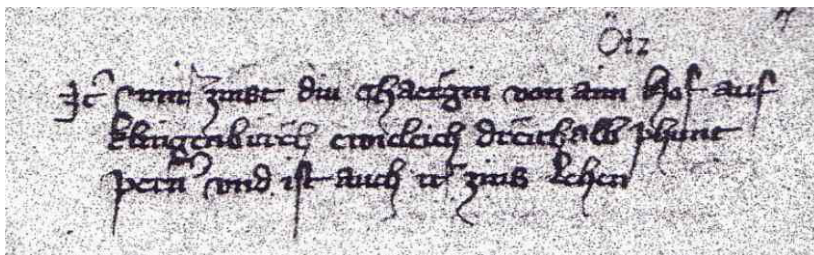 Ötz
It mir zinst diu chaergin von ain hof auf
klingenburch ewicleich dreuhalb phunt
pern vnd ist auch ir zins lehen